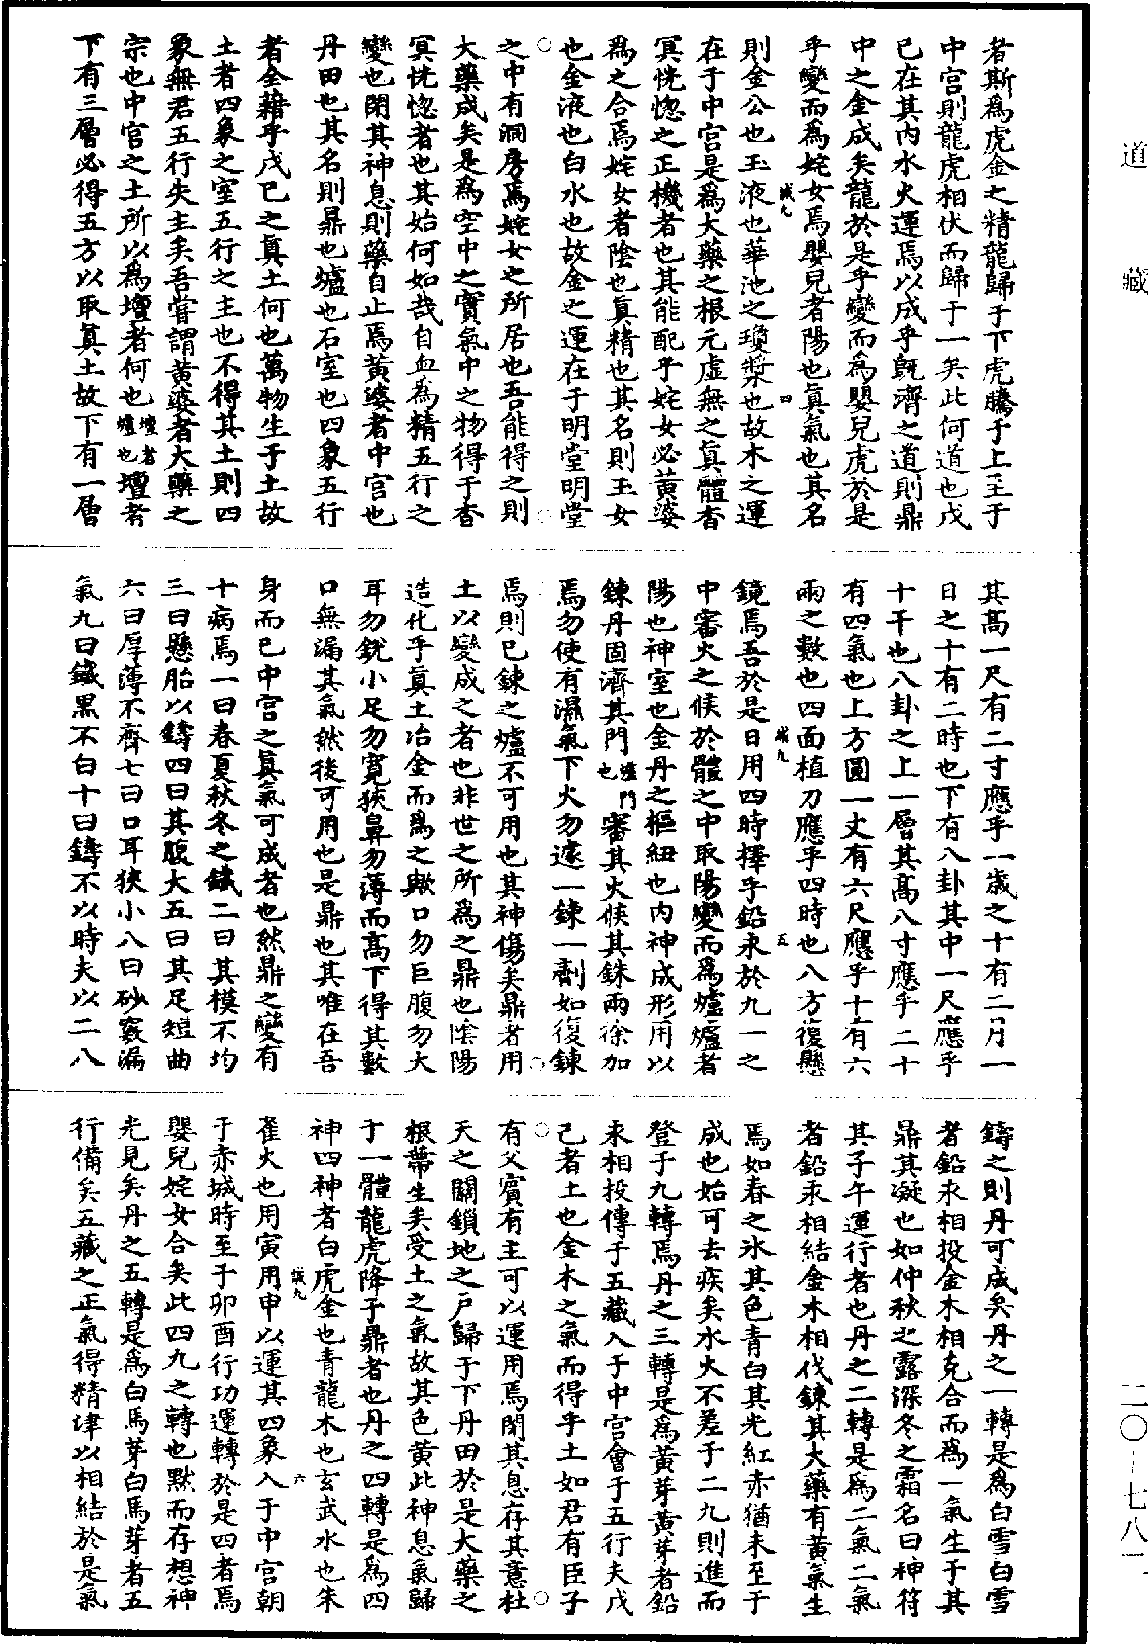 者斯爲虎金之精龍歸于下虎騰于上至于
中宮則龍虎相伏而歸于一矣此何道也戊
已在其內水火運焉以成乎旣濟之道則鼎
中之金成矣龍於是乎變而爲嬰兒虎於是
乎變而爲姹女焉嬰兒者陽也眞氣也其名
則金公也玉液也華池之瓊漿也故木之運
在于中宮是爲大藥之根元虛無之眞體杳
冥恍惚之正機者也其能配乎姹女必黃婆
爲之合焉姹女者陰也眞精也其名則玉女
也金液也白水也故金之運在于明堂明堂
之中有洞房焉姹女之所居也吾能得之則
大藥成矣是爲空中之寶氣中之物得于杳
冥恍惚者也其始何如哉自血爲精五行之
變也閉其神息則藥自止焉黃婆者中宮也
丹田也其名則鼎也爐也石室也四象五行
者全藉乎戊已之眞土何也萬物生于土故
土者四象之室五行之主也不得其土則四
象無君五行失主矣吾嘗謂黃婆者大藥之
宗也中宮之土所以爲壇者何也壇者爐也壇者
下有三層必得五方以取眞土故下有一層
其高一尺有二寸應乎一歲之十有二月一
日之十有二時也下有八卦其中一尺應乎
十干也八卦之上一層其高八寸應乎二十
有四氣也上方圓一丈有六尺應乎十有六
兩之數也四面植刀應乎四時也八方復懸
鏡焉吾於是日用四時擇乎鉛汞於九一之
中審火之候於體之中取陽變而爲爐爐者
陽也神室也金丹之樞紐也內神成形用以
鍊丹固濟其門爐門也審其火候其銖兩徐加
焉勿使有濕氣下火勿遽一鍊一劑如復鍊
焉則已鍊之爐不可用也其神傷矣鼎者用
土以變成之者也非世之所爲之鼎也陰陽
造化乎眞土冶金而爲之歟口勿巨腹勿大
耳勿銳小足勿寬狹鼻勿薄而高下得其數
口無漏其氣然後可用也是鼎也其唯在吾
身而已中宮之眞氣可成者也然鼎之變有
十病焉一曰春夏秋冬之鐵二曰其模不均
三曰懸胎以鑄四曰其腹大五曰其足短曲
六曰厚薄不齊七曰口耳狹小八曰砂竅漏
氣九曰鐵黑不白十曰鑄不以時夫以二八
鑄之則丹可成矣丹之一轉是爲白雪白雪
者鉛汞相投金木相克合而爲一氣生于其
鼎其凝也如仲秋之露深冬之霜名曰神符
其子午運行者也丹之二轉是爲二氣二氣
者鉛汞相結金木相伐鍊其大藥有黃氣生
焉如春之氷其色青白其光紅赤猶未至于
成也始可去疾矣水火不差于二九則進而
登于九轉焉丹之三轉是爲黃芽黃芽者鉛
汞相投傳于五藏入于中宮會于五行夫戊
己者土也金木之氣而得乎土如君有臣子
有父賓有主可以運用焉閉其息存其意杜
天之關鎖地之戶歸于下丹田於是大藥之
根蔕生矣受土之氣故其色黃此神息氣歸
于一體龍虎降于鼎者也丹之四轉是爲四
神四神者白虎金也青龍木也玄武水也朱
雀火也用寅用申以運其四象入于中宮朝
于赤城時至于卯酉行功運轉於是四者焉
嬰兒姹女合矣此四九之轉也默而存想神
光見矣丹之五轉是爲白馬芽白馬芽者五
行備矣五藏之正氣得精津以相結於是氣
道藏
二〇—七八一